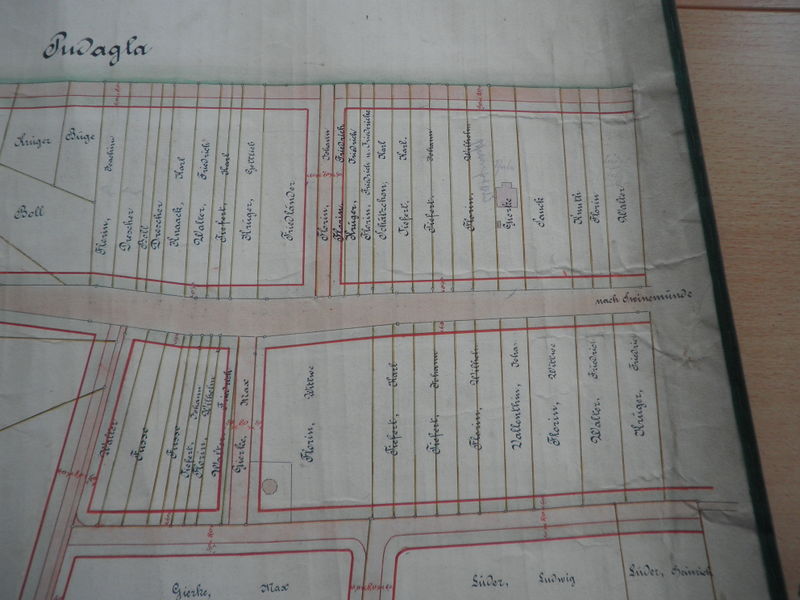 Pudagla
Krüger
Büge
Boll
Florin, Joachim
Drescher
Boll
Drescher
Knaack, Karl
Walter, Friedrich
Tiefert, Karl
Krüger, Gottlieb
Friedländer
Florin, Johann
Florin, Friedrich
Krüger, Friedrich
Florin, Friedrich u. Friedericke
Schültzchon, Karl
Tiefert, Karl.
Tiefert, Johann
Florin, Wilhelm
Gierke
Knuth
Florin
Walter
nach Swinemünde
Walter
Fusse
Fusse
Tiefert, Johann
Florin, Wilhelm
Walter, Friedrich
Gierke, Max
Florin, Wittwe
Tiefert, Karl
Tiefert, Johann
Florin, Wilhelm
Vallenthin, Joha
Florin, Wittwe
Walter, Friedrich
Krüger, Friedric
Gierke, Max
Lüder, Ludwig
Lüder, Heinrich